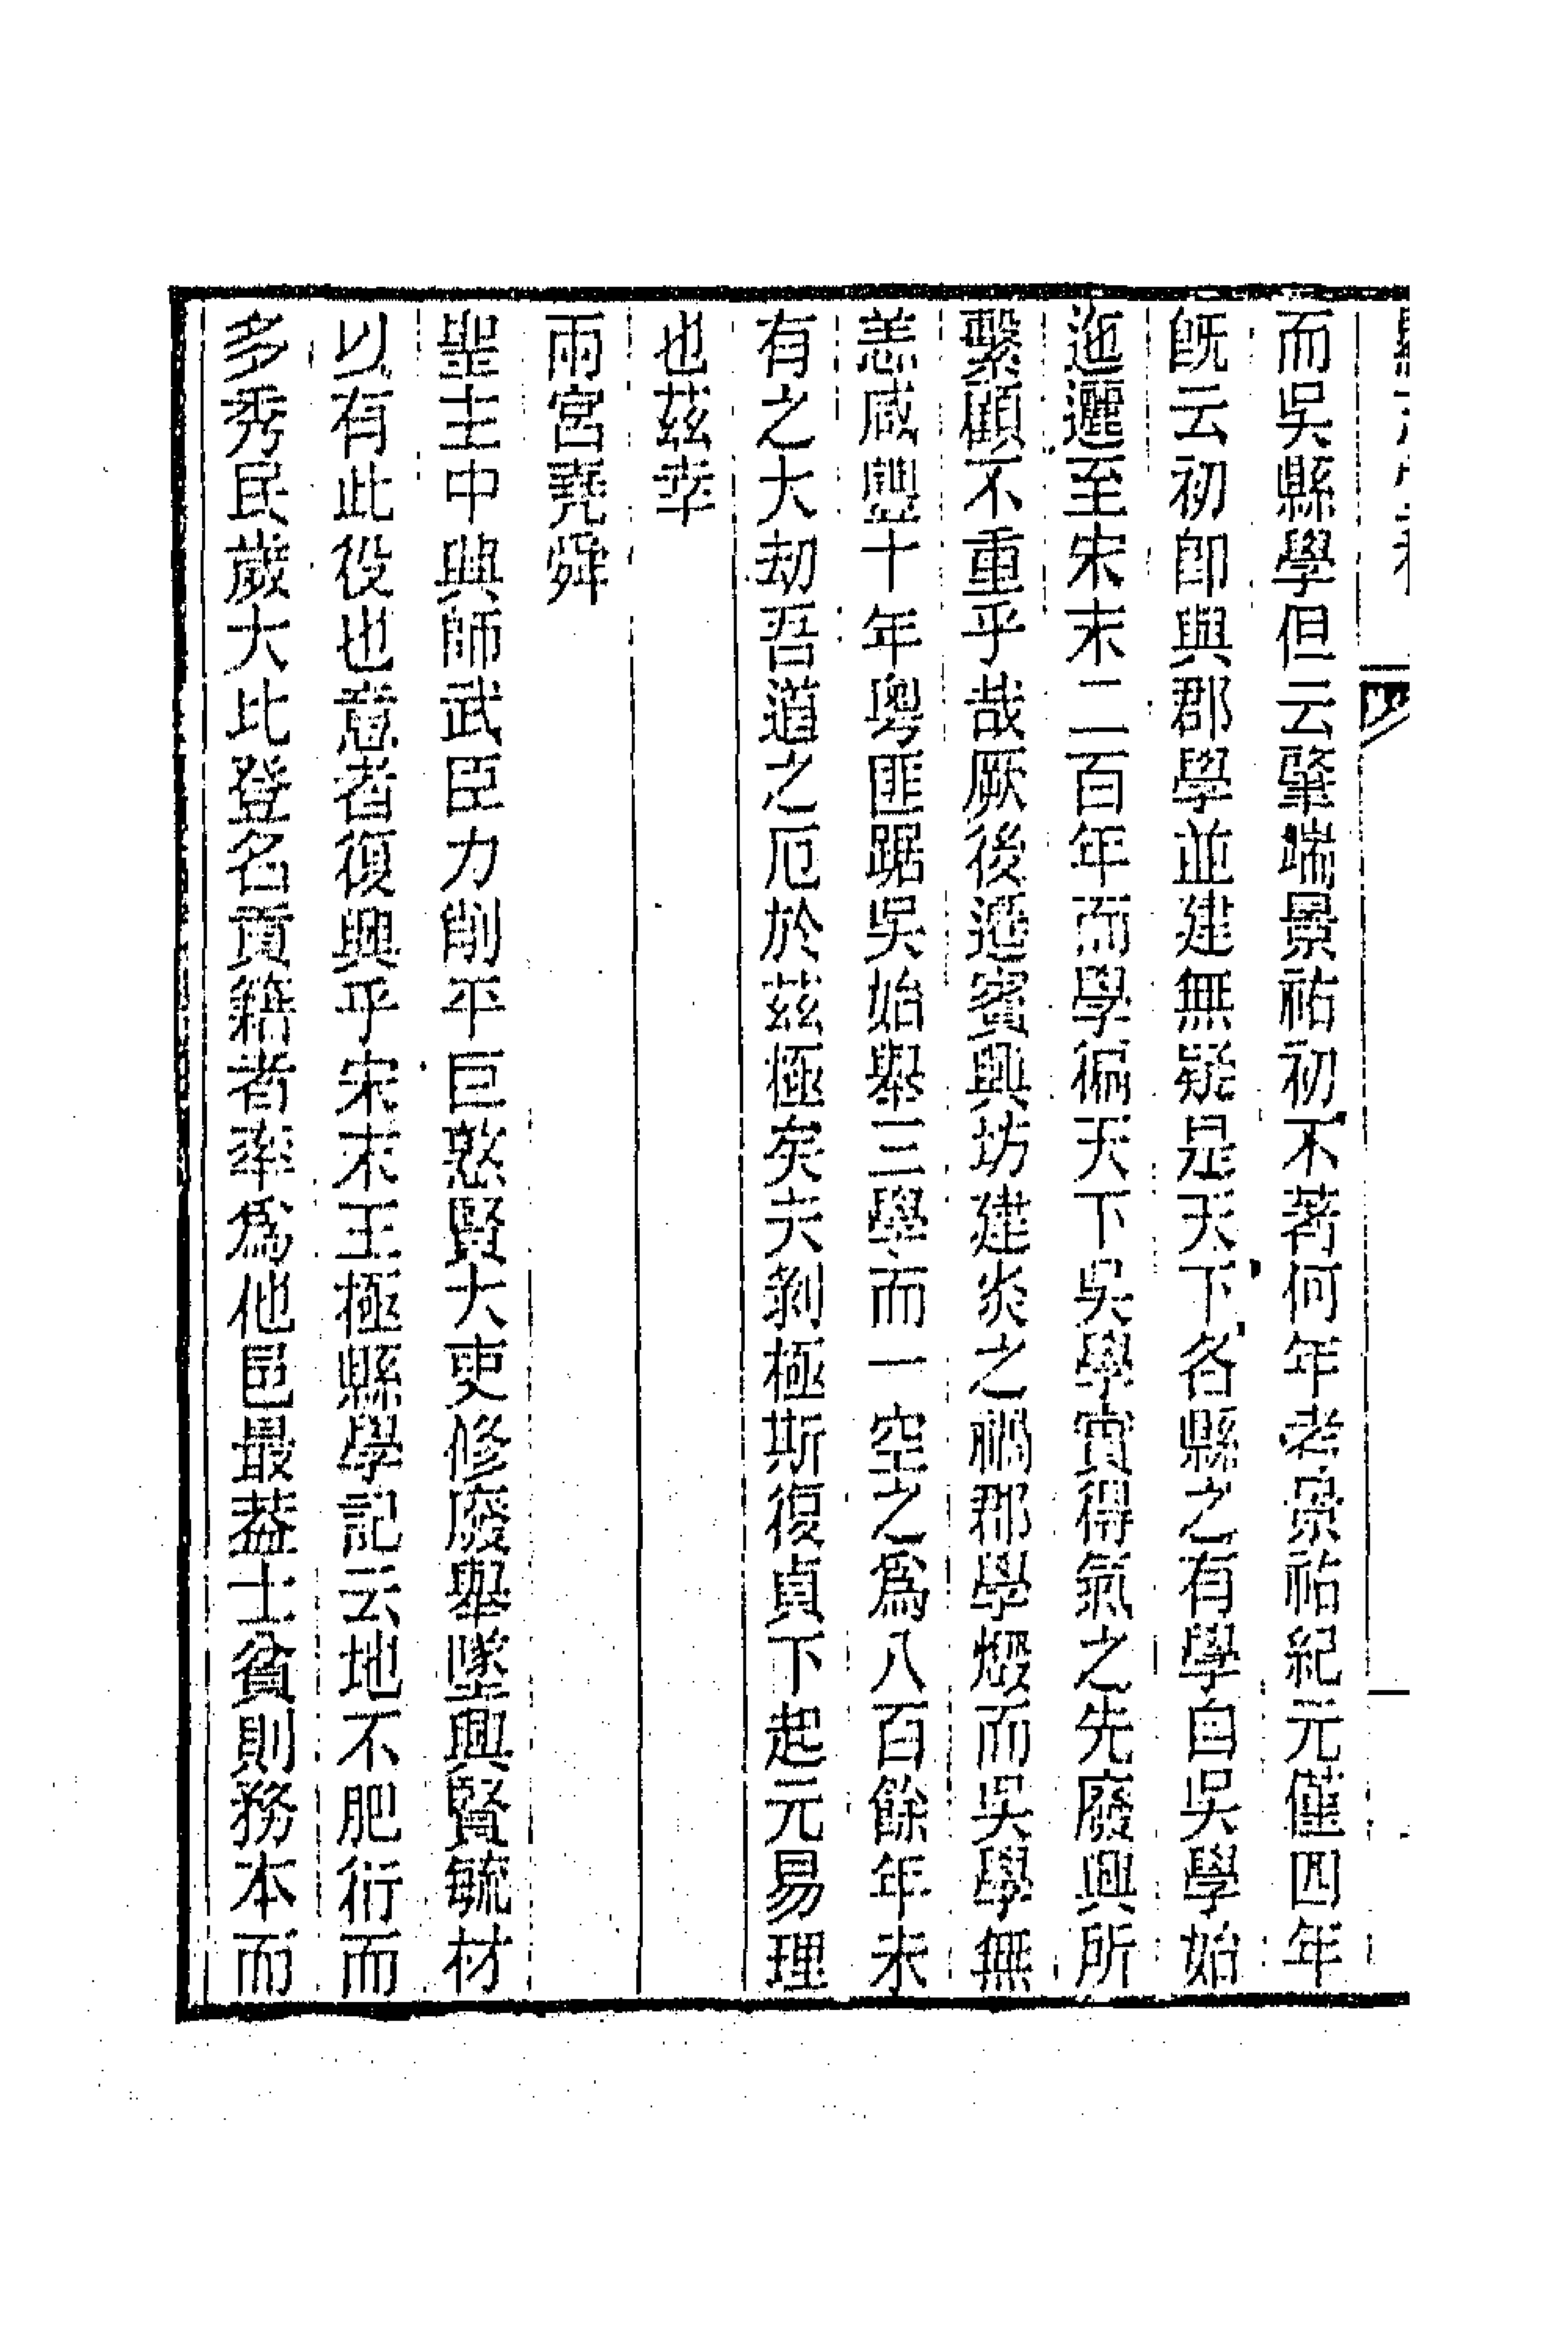 而吳縣學但云肇端景祐初不著何年考景祐紀元僅四年
旣云初卽與郡學並建無疑是天下各縣之有學自吳學始
迤邐至宋末二百年而學徧天下吳學實得氣之先廢興所
繫顧不重乎哉厥後遷賓興坊建炎之禍郡學燬而吳學無
恙咸豐十年粵匪踞吳始舉三學而一空之爲八百餘年未
有之大劫吾道之厄於茲極矣夫剝極斯復貞下起元易理
也茲幸
兩宮堯舜
聖主中興師武臣力削平巨憝賢大吏修廢舉墜興賢毓材
以有此役也意者復興乎宋末王極縣學記云地不肥衍而
多秀民歲大比登名貢籍者率爲他邑最葢士貧則務本而